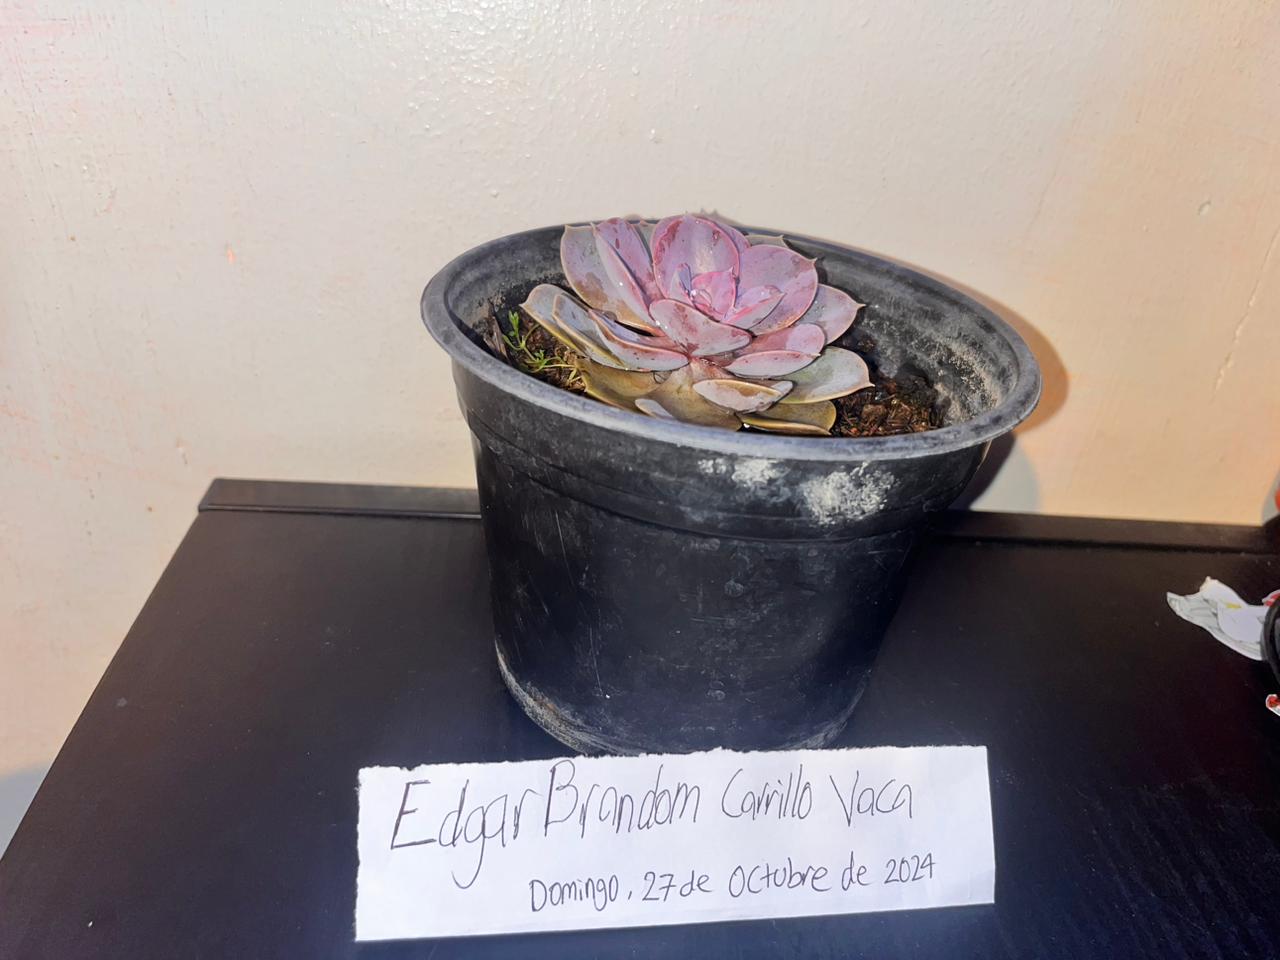 Edgar Brandom Carrillo Vaca
Domingo, 27 de Octubre de 2024